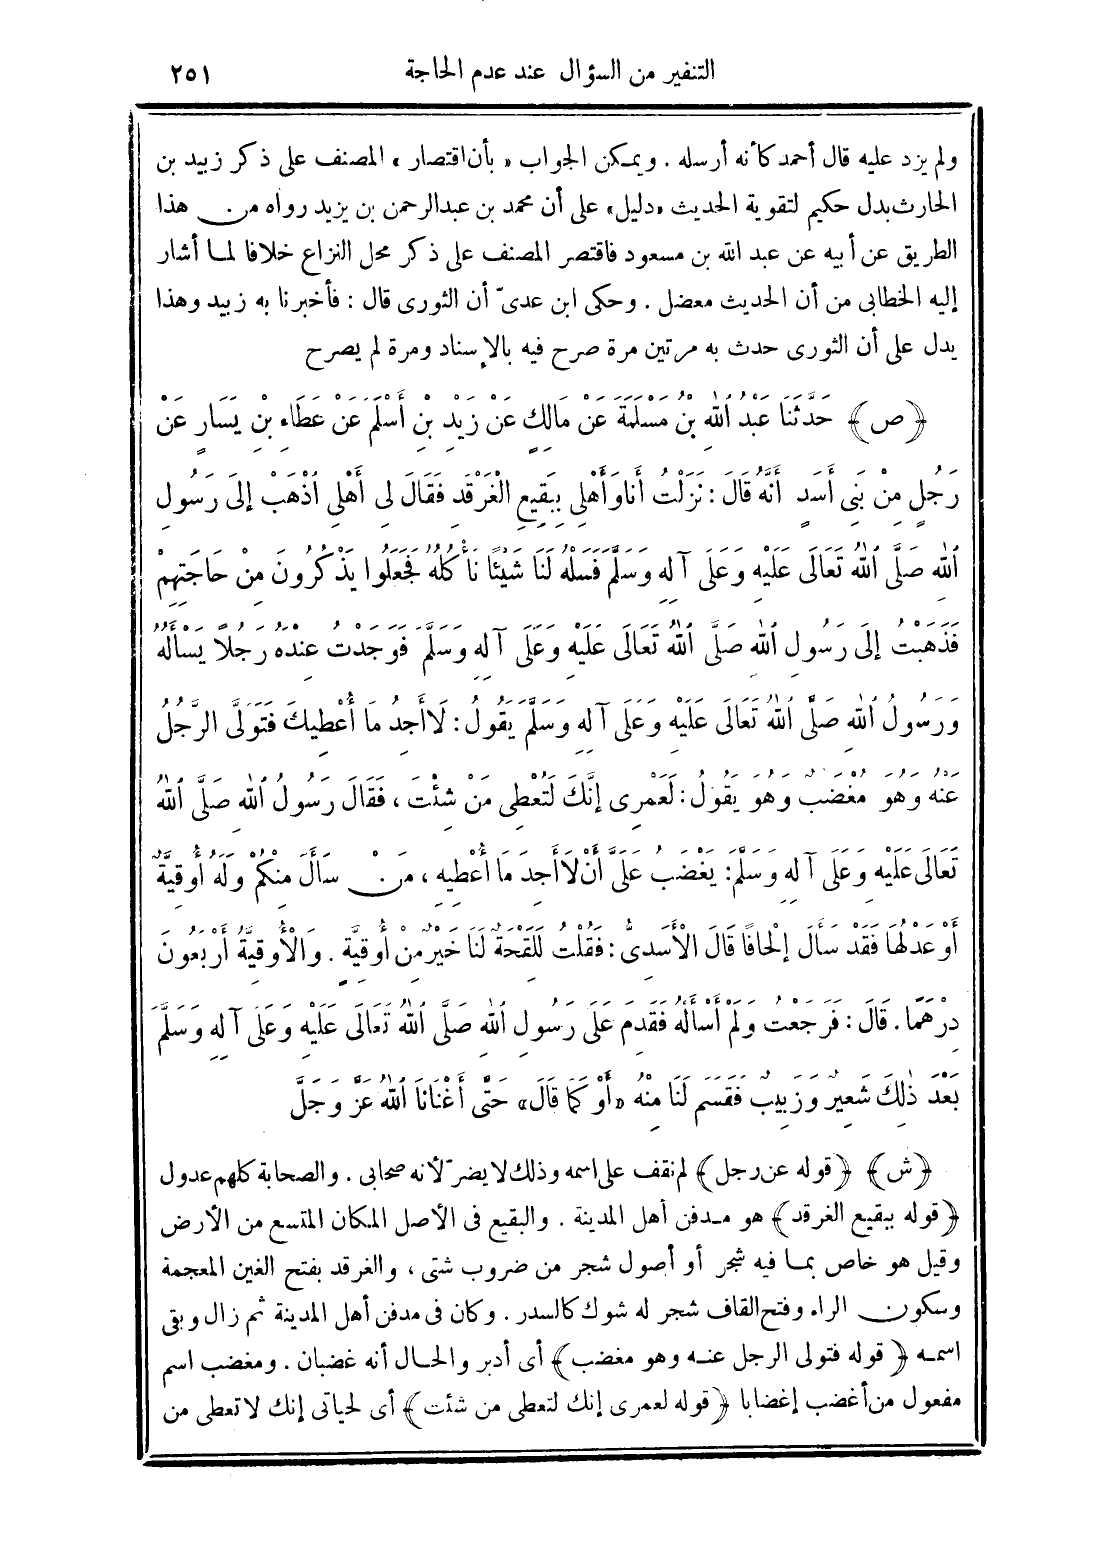 التنفير من السؤال عند عدم الحاجة ٢٥١
ولم يزد عليه قال أحمد كأنه أرسله . ويمكن الجواب « بأن اقتصار » المصنف على ذكر زبيد بن
الحارث بدل حكيم لتقوية الحديث «دليل» على أن محمد بن عبدالرحمن بن يزيد رواه من هذا
الطريق عن أبيه عن عبد الله بن مسعود فاقتصر المصنف على ذكر محل النزاع خلافا لما أشار
إليه الخطابى من أن الحديث معضل . وحكى ابن عدىّ أن الثورى قال : فأخبرنا به زبيد وهذا
يدل على أن الثورى حدث به مرتين مرة صرح فيه بالإسناد ومرة لم يصرح
﴿ص﴾ حَدَّثَنَا عَبْدُ ٱللهِ بْنُ مَسْلَمَةَ عَنْ مَالِكٍ عَنْ زَيْدِ بْنِ أَسْلَمَ عَنْ عَطَاءِ بْنِ يَسَارٍ عَنْ
رَجُلٍ مِنْ بَنِى أَسَدٍ أَنَّهُ قَالَ : نَزَلْتُ أَنَا وَأَهْلِى بِبَقِيعِ الْغَرْقَدِ فَقَالَ لِى أَهْلِى ٱذْهَبْ إِلَى رَسُولِ
ٱللهِ صَلَّى ٱللهُ تَعَالَى عَلَيْهِ وَعَلَى آلِهِ وَسَلَّمَ فَسَلْهُ لَنَا شَيْئًا نَأْكُلُهُ فَجَعَلُوا يَذْكُرُونَ مِنْ حَاجَتِهِمْ
فَذَهَبْتُ إِلَى رَسُولِ ٱللهِ صَلَّى ٱللهُ تَعَالَى عَلَيْهِ وَعَلَى آلِهِ وَسَلَّمَ فَوَجَدْتُ عِنْدَهُ رَجُلًا يَسْأَلُهُ
وَرَسُولُ ٱللهِ صَلَّى ٱللهُ تَعَالَى عَلَيْهِ وَعَلَى آلِهِ وَسَلَّمَ يَقُولُ : لَا أَجِدُ مَا أُعْطِيكَ فَتَوَلَّى الرَّجُلُ
عَنْهُ وَهُوَ مُغْضَبٌ وَهُوَ يَقُولُ : لَعَمْرِى إِنَّكَ لَتُعْطِى مَنْ شِئْتَ ، فَقَالَ رَسُولُ ٱللهِ صَلَّى ٱللهُ
تَعَالَى عَلَيْهِ وَعَلَى آلِهِ وَسَلَّمَ : يَغْضَبُ عَلَىَّ أَنْ لَا أَجِدَ مَا أُعْطِيهِ ، مَنْ سَأَلَ مِنْكُمْ وَلَهُ أُوقِيَّةٌ
أَوْ عَدْلُهَا فَقَدْ سَأَلَ إِلْحَافًا قَالَ الْأَسَدِىُّ : فَقُلْتُ لَلَقْحَةٌ لَنَا خَيْرٌ مِنْ أُوقِيَّةٍ . وَالْأُوقِيَّةُ أَرْبَعُونَ
دِرْهَمًا . قَالَ : فَرَجَعْتُ وَلَمْ أَسْأَلْهُ فَقَدِمَ عَلَى رَسُولِ ٱللهِ صَلَّى ٱللهُ تَعَالَى عَلَيْهِ وَعَلَى آلِهِ وَسَلَّمَ
بَعْدَ ذٰلِكَ شَعِيرٌ وَزَبِيبٌ فَقَسَمَ لَنَا مِنْهُ «أَوْ كَمَا قَالَ» حَتَّى أَغْنَانَا ٱللهُ عَزَّ وَجَلَّ
﴿ش﴾ ﴿قوله عن رجل﴾ لم نقف على اسمه وذلك لا يضرّ لأنه صحابى . والصحابة كلهم عدول
﴿قوله ببقيع الغرقد﴾ هو مدفن أهل المدينة . والبقيع فى الأصل المكان المتسع من الأرض
وقيل هو خاص بما فيه شجر أو أصول شجر من ضروب شتى ، والغرقد بفتح الغين المعجمة
وسكون الراء وفتح القاف شجر له شوك كالسدر . وكان فى مدفن أهل المدينة ثم زال وبقى
اسمه ﴿قوله فتولى الرجل عنه وهو مغضب﴾ أى أدبر والحال أنه غضبان . ومغضب اسم
مفعول من أغضب إغضابا ﴿قوله لعمرى إنك لتعطى من شئت﴾ أى لحياتى إنك لا تعطى من